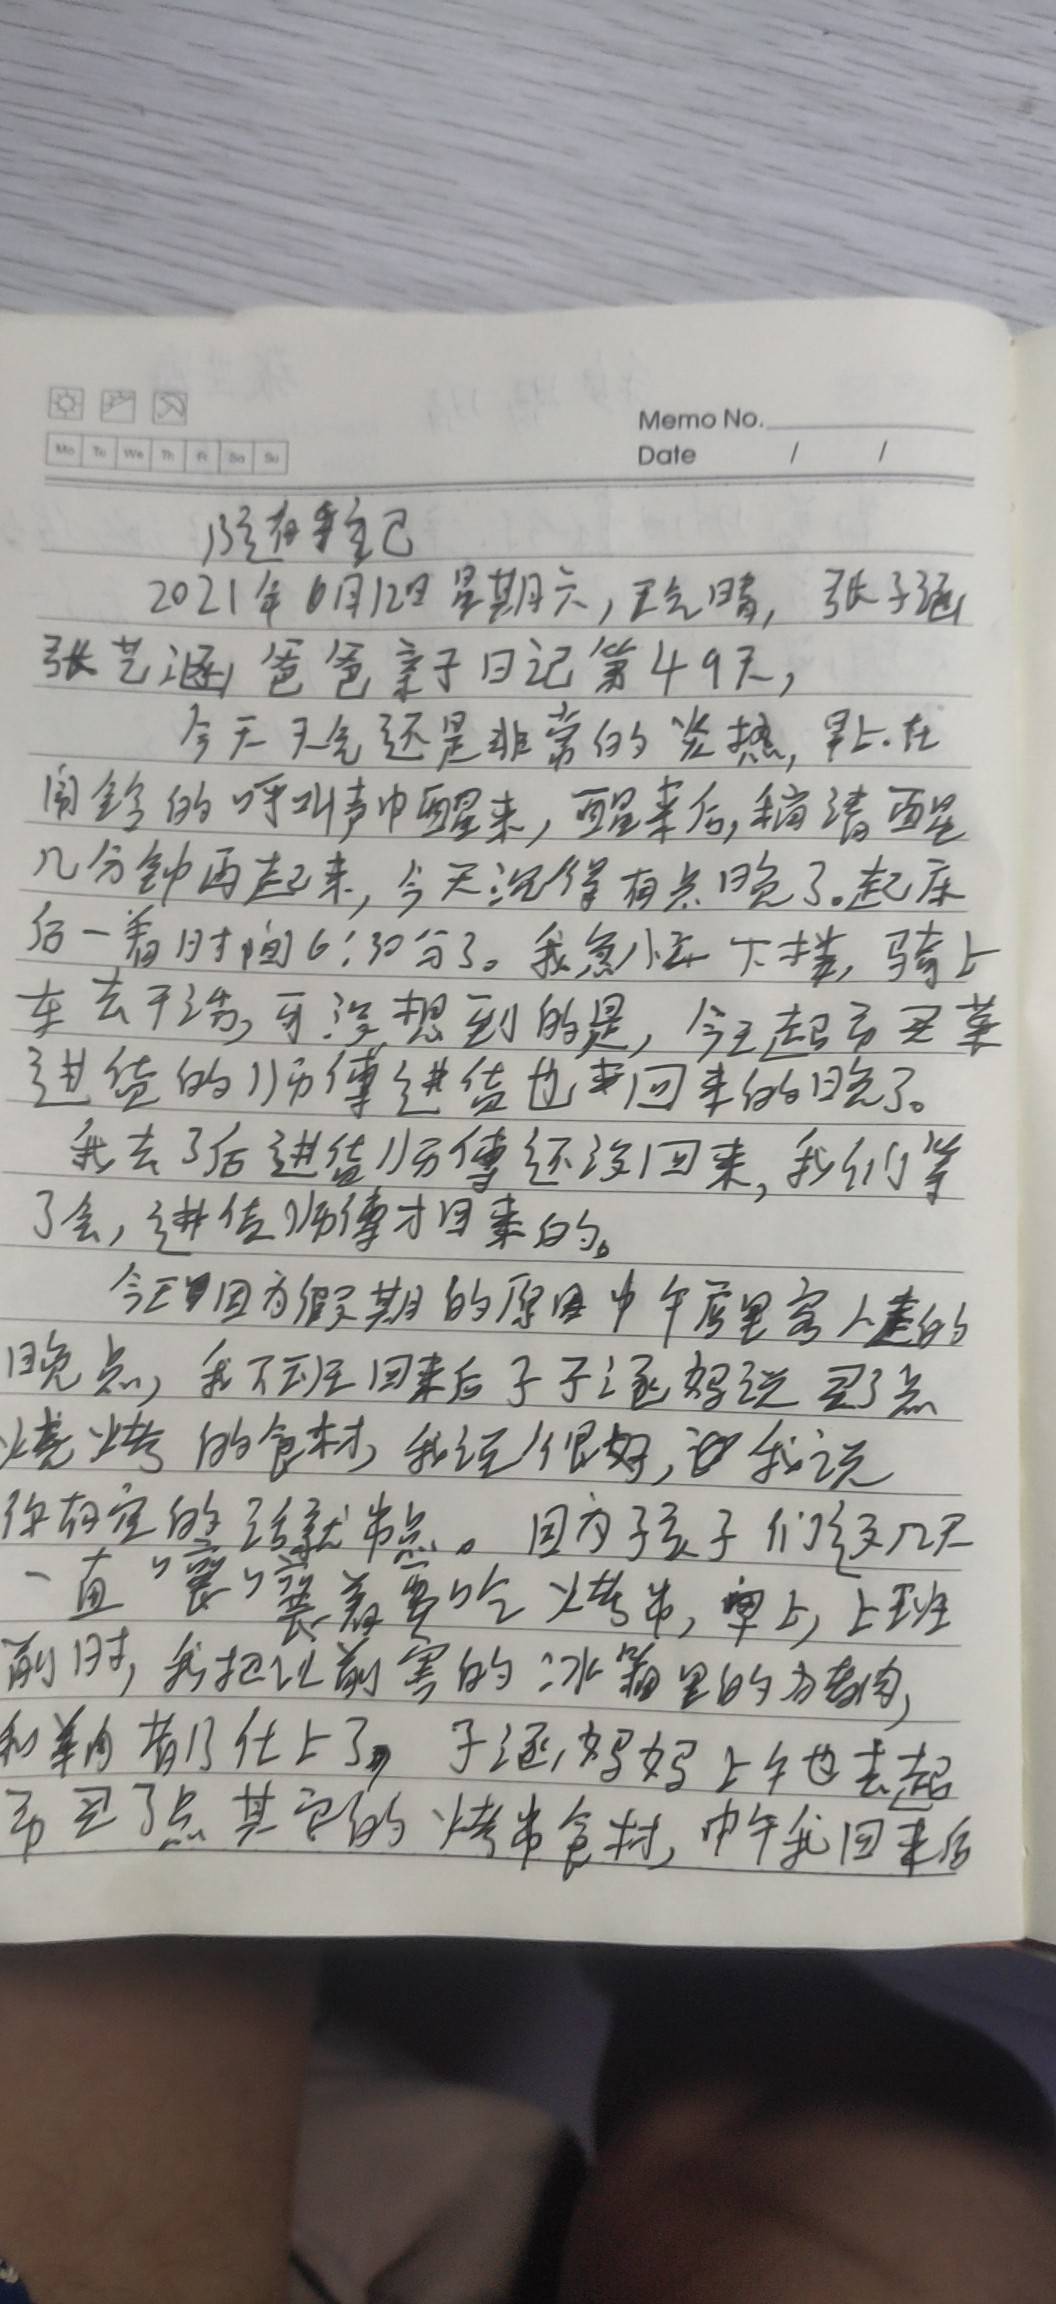 Memo No.
Mo Tu We Th Fr Sa Su
Date / /
2021年6月12日星期六,天气晴,张子涵
张艺涵爸爸亲子日记第49天,
今天天气还是非常的炎热,早上在
闹铃的呼叫声中醒来,醒来后,稍清醒
几分钟再起来,今天起得有点晚了。起床
后一看时间6:30分了。我急忙下楼,骑上
车去干活,可没想到的是,今天超市买菜
进货的师傅进货也回来的晚了。
我去了后进货师傅还没回来,我们等
了会,进货师傅才回来的。
今天因为假期的原因中午店里客人走的
晚点,我下班回来后子子涵妈说买了点
烧烤的食材,我说很好,我说
你在家的话就串点。因为子孩子们这几天
一直"嚷"嚷着要吃烤串,早上,上班
前时,我把以前的冰箱里的肉,
和羊肉都化上了,子涵妈妈上午也去超
市买了点其它的烤串食材,中午我回来后